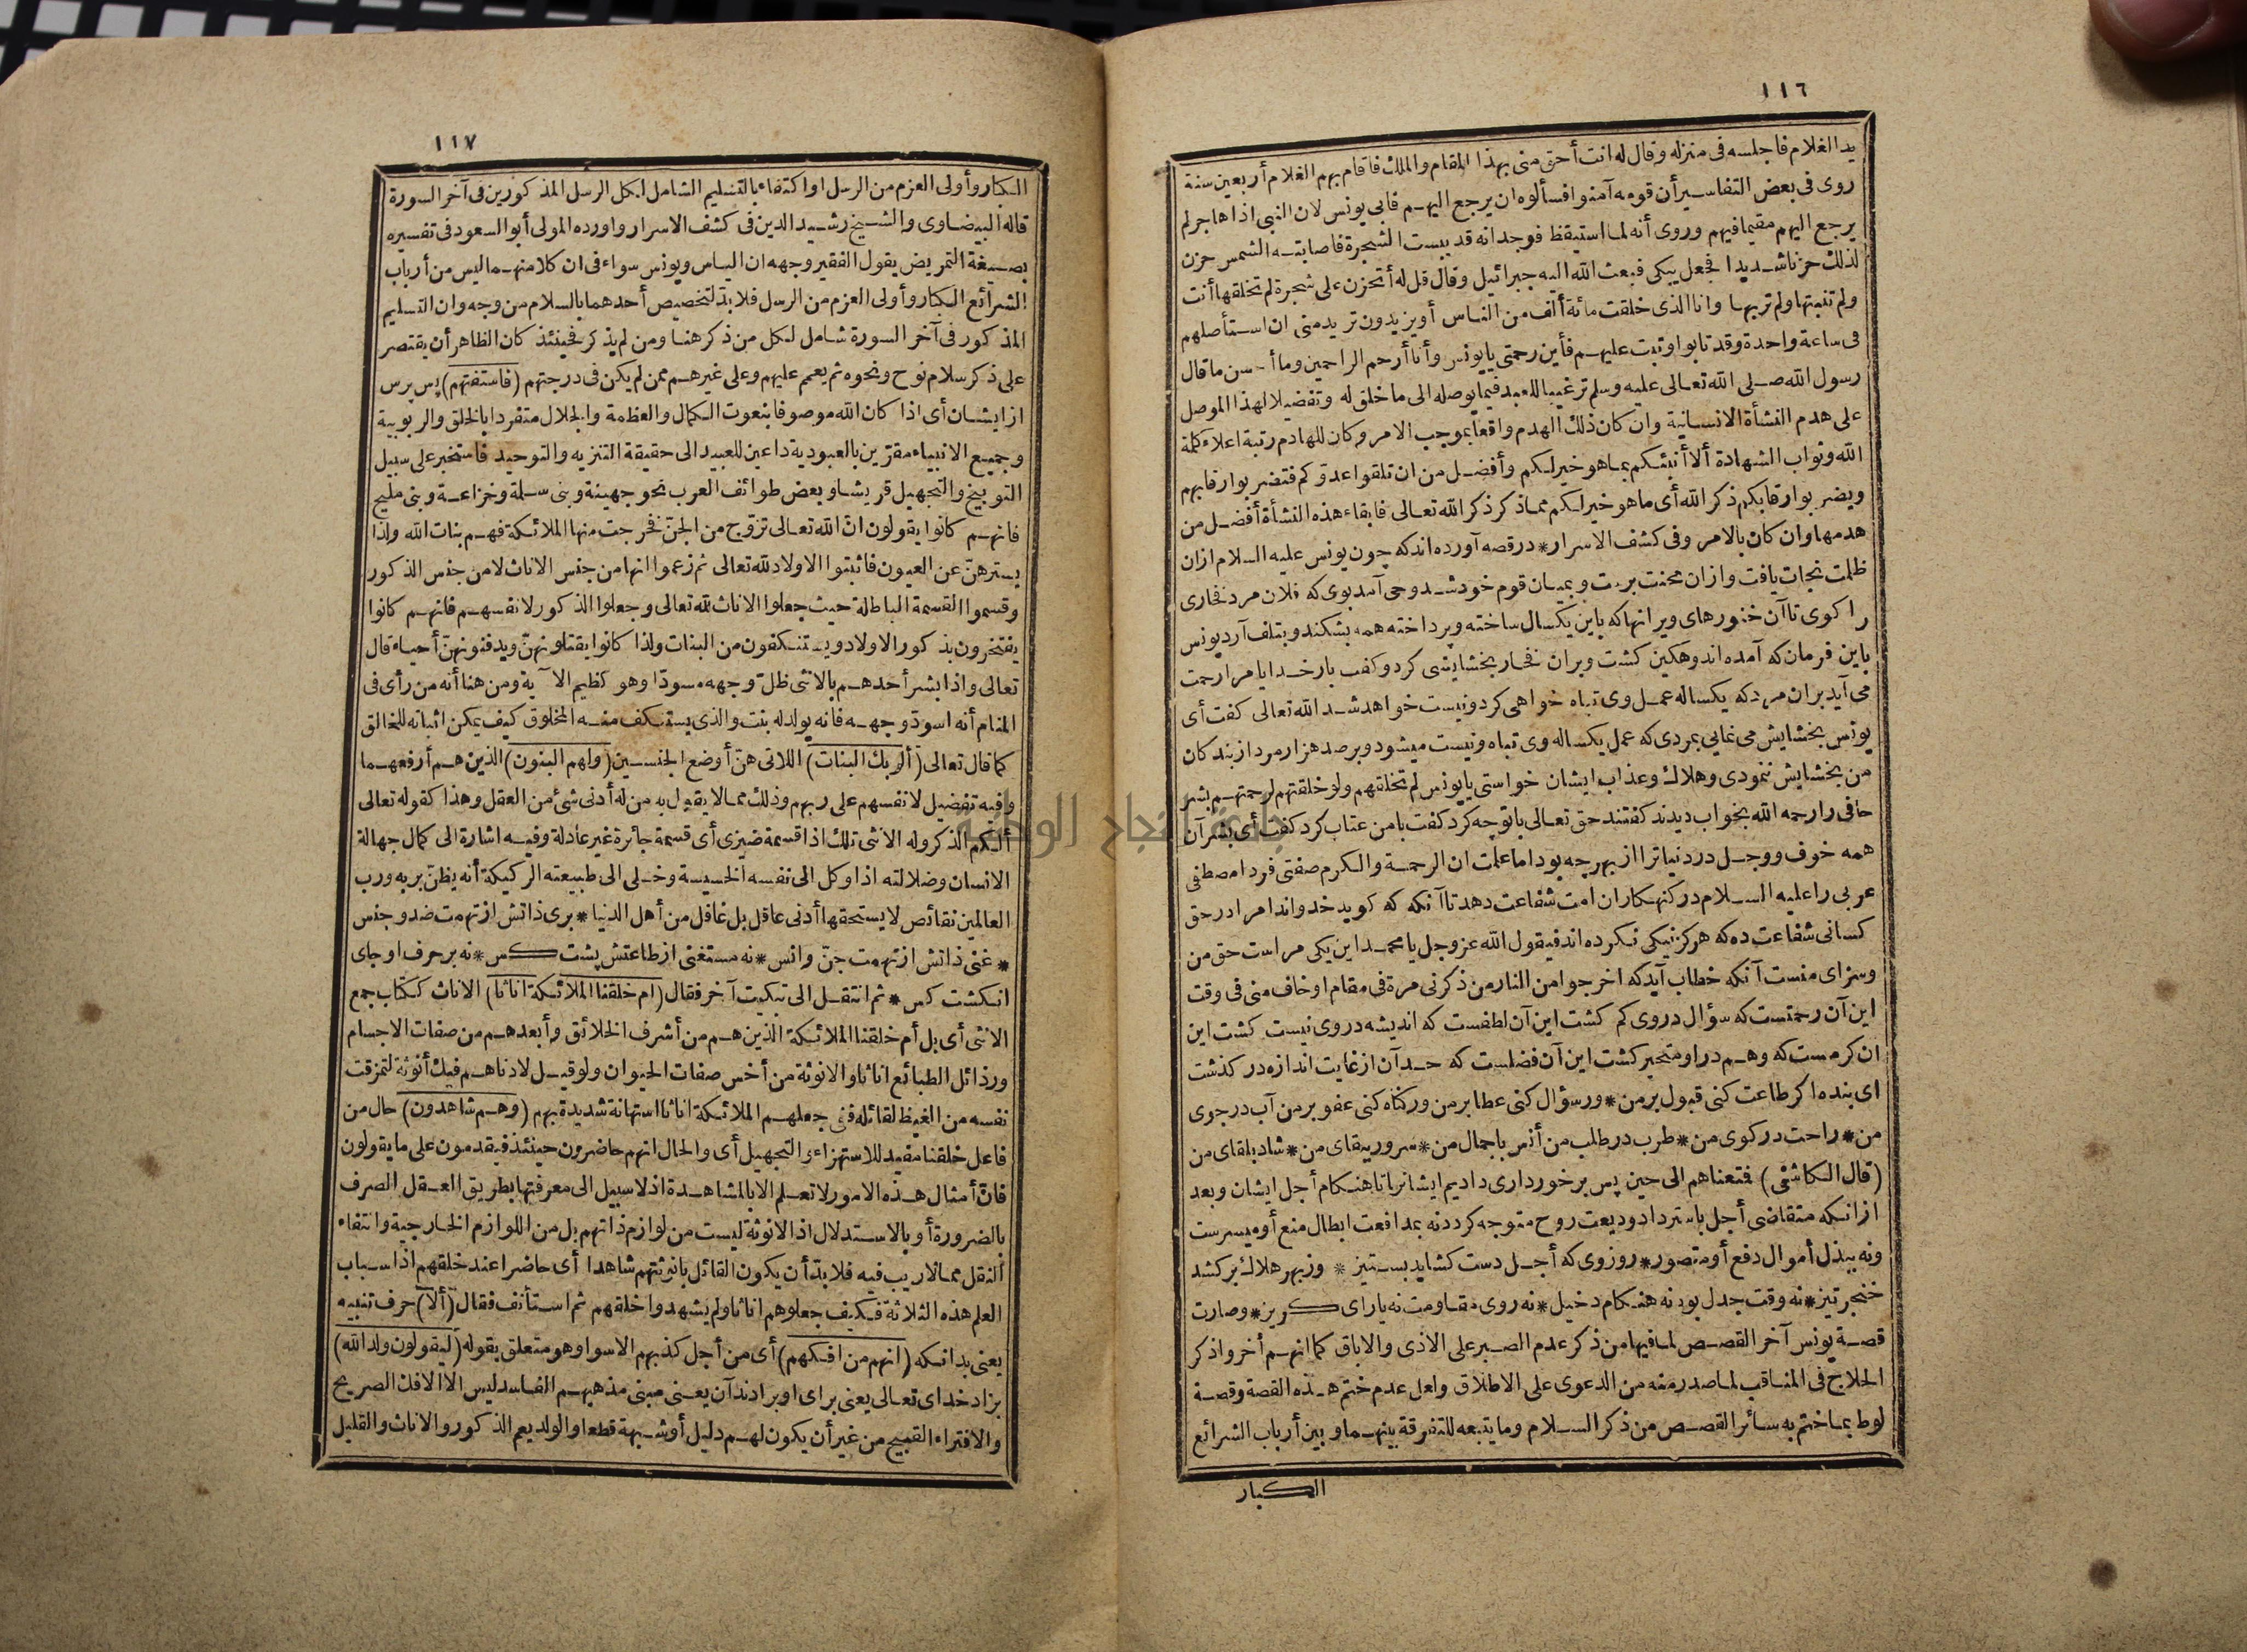 ١١٦
يد الغلام فاجلسه فى منزله وقال له انت أحق منى بهذا المقام والملك فاقام بهم الغلام أربعين سنة
روى فى بعض التفاسير أن قومه آمنوا فسألوه ان يرجع اليهم فابى يونس لان النبى اذا هاجر لم
يرجع اليهم مقيما فيهم وروى أنه لما استيقظ فوجد انه قد يبست الشجرة فاصابته الشمس حزن
لذلك حزنا شديدا فجعل يبكى فبعث الله اليه جبرائيل وقال قل له أتحزن على شجرة لم تخلقها أنت
ولم تنبتها ولم تربها وانا الذى خلقت مائة ألف من الناس أو يزيدون تريد منى ان استأصلهم
فى ساعة واحدة وقد تابوا وتبت عليهم فأين رحمتى يا يونس وأنا أرحم الراحمين وما أحسن ما قال
رسول الله صلى الله تعالى عليه وسلم ترغيبا للعبد فيما يوصله الى ما خلق له وتفضيلا لهذا الموصل
على هدم النشأة الانسانية وان كان ذلك الهدم واقعا بموجب الامر وكان للهادم رتبة اعلاء كلمة
الله وثواب الشهادة ألا أنبئكم بما هو خير لكم وأفضل من ان تلقوا عدوّكم فتضربوا رقابهم
ويضربوا رقابكم ذكر الله أى ما هو خير لكم مما ذكر ذكر الله تعالى فابقاء هذه النشأة أفضل من
هدمها وان كان بالامر وفى كشف الاسرار * در قصه آورده اند كه چون يونس عليه السلام ازان
ظلمت نجات يافت وازان محنت برست وبميان قوم خود شد وحى آمد بوى كه فلان مرد فخارى
را كوى تا آن خنورهاى ويرانها كه باين يكسال ساخته وپرداخته همه بشكند وبتلف آرد يونس
باين فرمان كه آمده اندوهكين كشت وبران فخار بخشايشى كرد وكفت بار خدايا مرا رحمت
مى آيد بران مرد كه يكساله عمل وى تباه خواهى كرد ونيست خواهد شد الله تعالى كفت أى
يونس بخشايش مى نمايى بمردى كه عمل يكساله وى تباه ونيست ميشود وبر صد هزار مرد از بندكان
من بخشايش ننمودى وهلاك وعذاب ايشان خواستى يا يونس لم تخلقهم ولو خلقتهم لرحمتهم بشر
حافى را رحمه الله بخواب ديدند كفتند حق تعالى باتو چه كرد كفت بامن عتاب كرد كفت أى بشر آن
همه خوف ووجل در دنيا ترا از بهر چه بود اما علمت ان الرحمة والكرم صفتى فردا مصطفى
عربى را عليه السلام در كنهكاران امت شفاعت دهد تا آنكه كه كويد خداوندا مرا در حق
كسانى شفاعت ده كه هركز نيكى نكرده اند فيقول الله عز وجل يا محمد اين يكى مراست حق من
وسزاى منست آنكه خطاب آيد كه اخرجوا من النار من ذكرنى مرة فى مقام او خاف منى فى وقت
اين آن رحمتست كه سؤال دروى كم كشت اين آن لطفست كه انديشه دروى نيست كشت اين
ان كرمست كه وهم دراو متحير كشت اين آن فضلست كه حد آن از غايت اندازه در كذشت
اى بنده اكر طاعت كنى قبول بر من * ور سؤال كنى عطا بر من ور كناه كنى عفو بر من آب در جوى
من * راحت در كوى من * طرب در طلب من أنس با جمال من * سرور ببقاى من * شاد بلقاى من
(قال الكاشفى) فتعناهم الى حين پس برخوردارى داديم ايشانرا تا هنكام أجل ايشان وبعد
ازانكه متقاضى أجل باسترداد وديعت روح متوجه كردد نه بمدافعت ابطال منع او ميسرست
ونه ببذل أموال دفع أو متصور * روزى كه أجل دست كشايد بستيز * وز بهر هلاك بركشد
خنجر تيز * نه وقت جدل بود نه هنكام دخيل * نه روى مقاومت نه ياراى كريز * وصارت
قصة يونس آخر القصص لما فيها من ذكر عدم الصبر على الاذى والاباق كما انهم أخروا ذكر
الحلاج فى المناقب لما صدر منه من الدعوى على الاطلاق ولعل عدم ختم هذه القصة وقصة
لوط بما ختم به سائر القصص من ذكر السلام وما يتبعه للتفرقة بينهما وبين أرباب الشرائع
الكبار
١١٧
الكبار وأولى العزم من الرسل او اكتفاء بالتسليم الشامل لكل الرسل المذكورين فى آخر السورة
قاله البيضاوى والشيخ رشيد الدين فى كشف الاسرار واورده المولى أبو السعود فى تفسيره
بصيغة التمريض يقول الفقير وجهه ان الياس ويونس سواء فى ان كلا منهما ليس من أرباب
الشرائع الكبار وأولى العزم من الرسل فلا بدّ لتخصيص أحدهما بالسلام من وجه وان التسليم
المذكور فى آخر السورة شامل لكل من ذكر هنا ومن لم يذكر فحينئذ كان الظاهر أن يقتصر
على ذكر سلام نوح ونحوه ثم يعمم عليهم وعلى غيرهم ممن لم يكن فى درجتهم (فاستفتهم) پس پرس
از ايشان أى اذا كان الله موصوفا بنعوت الكمال والعظمة والجلال متفردا بالخلق والربوبية
وجميع الانبياء مقرّين بالعبودية داعين للعبيد الى حقيقة التنزيه والتوحيد فاستخبر على سبيل
التوبيخ والتجهيل قريشا وبعض طوائف العرب نحو جهينة وبنى سلمة وخزاعة وبنى مليح
فانهم كانوا يقولون انّ الله تعالى تزوّج من الجنّ فخرجت منها الملائكة فهم بنات الله ولذا
يسترهنّ عن العيون فاثبتوا الاولاد لله تعالى ثم زعموا انها من جنس الاناث لا من جنس الذكور
وقسموا القسمة الباطلة حيث جعلوا الاناث لله تعالى وجعلوا الذكور لانفسهم فانهم كانوا
يفتخرون بذكور الاولاد ويستنكفون من البنات ولذا كانوا يقتلونهنّ ويدفنونهنّ أحياء قال
تعالى واذا بشر أحدهم بالانثى ظلّ وجهه مسودّا وهو كظيم الآية ومن هنا أنه من رأى فى
المنام أنه اسودّ وجهه فانه يولد له بنت والذى يستنكف منه المخلوق كيف يمكن اثباته للخالق
كما قال تعالى (ألربك البنات) اللاتى هنّ أوضع الجنسين (ولهم البنون) الذين هم أرفعهما
وفيه تفضيل لانفسهم على ربهم وذلك مما لا يقول به من له أدنى شئ من العقل وهذا كقوله تعالى
ألكم الذكر وله الانثى تلك اذا قسمة ضيزى أى قسمة جائرة غير عادلة وفيه اشارة الى كمال جهالة
الانسان وضلالته اذا وكل الى نفسه الخسيسة وخلى الى طبيعته الركيكة أنه يظنّ بربه ورب
العالمين نقائص لا يستحقها أدنى عاقل بل غافل من أهل الدنيا * برى ذاتش از تهمت ضد وجنس
* غنى ذاتش از تهمت جنّ وانس * نه مستغنى از طاعتش پشت كس * نه بر حرف او جاى
انكشت كس * ثم انتقل الى تبكيت آخر فقال (ام خلقنا الملائكة اناثا) الاناث ككتاب جمع
الانثى أى بل أم خلقنا الملائكة الذين هم من أشرف الخلائق وأبعدهم من صفات الاجسام
ورذائل الطبائع اناثا والانوثة من أخس صفات الحيوان ولو قيل لادناهم فيك أنوثة لتمزقت
نفسه من الغيظ لقائله ففى جعلهم الملائكة اناثا استهانة شديدة بهم (وهم شاهدون) حال من
فاعل خلقنا مفيد للاستهزاء والتجهيل أى والحال انهم حاضرون حينئذ فيقدمون على ما يقولون
فانّ أمثال هذه الامور لا تعلم الا بالمشاهدة اذ لا سبيل الى معرفتها بطريق العقل الصرف
بالضرورة أو بالاستدلال اذ الانوثة ليست من لوازم ذاتهم بل من اللوازم الخارجية وانتفاء
النقل مما لا ريب فيه فلا بدّ أن يكون القائل بانوثتهم شاهدا أى حاضرا عند خلقهم اذ اسباب
العلم هذه الثلاثة فكيف جعلوهم اناثا ولم يشهدوا خلقهم ثم استأنف فقال (ألا) حرف تنبيه
يعنى بدانكه (انهم من افكهم) أى من أجل كذبهم الاسوا وهو متعلق بقوله (ليقولون ولد الله)
بزاد خداى تعالى يعنى براى او براند آن يعنى مبنى مذهبهم الفاسد ليس الا الافك الصريح
والافتراء القبيح من غير أن يكون لهم دليل أو شبهة قطعا والولد يعم الذكور والاناث والقليل